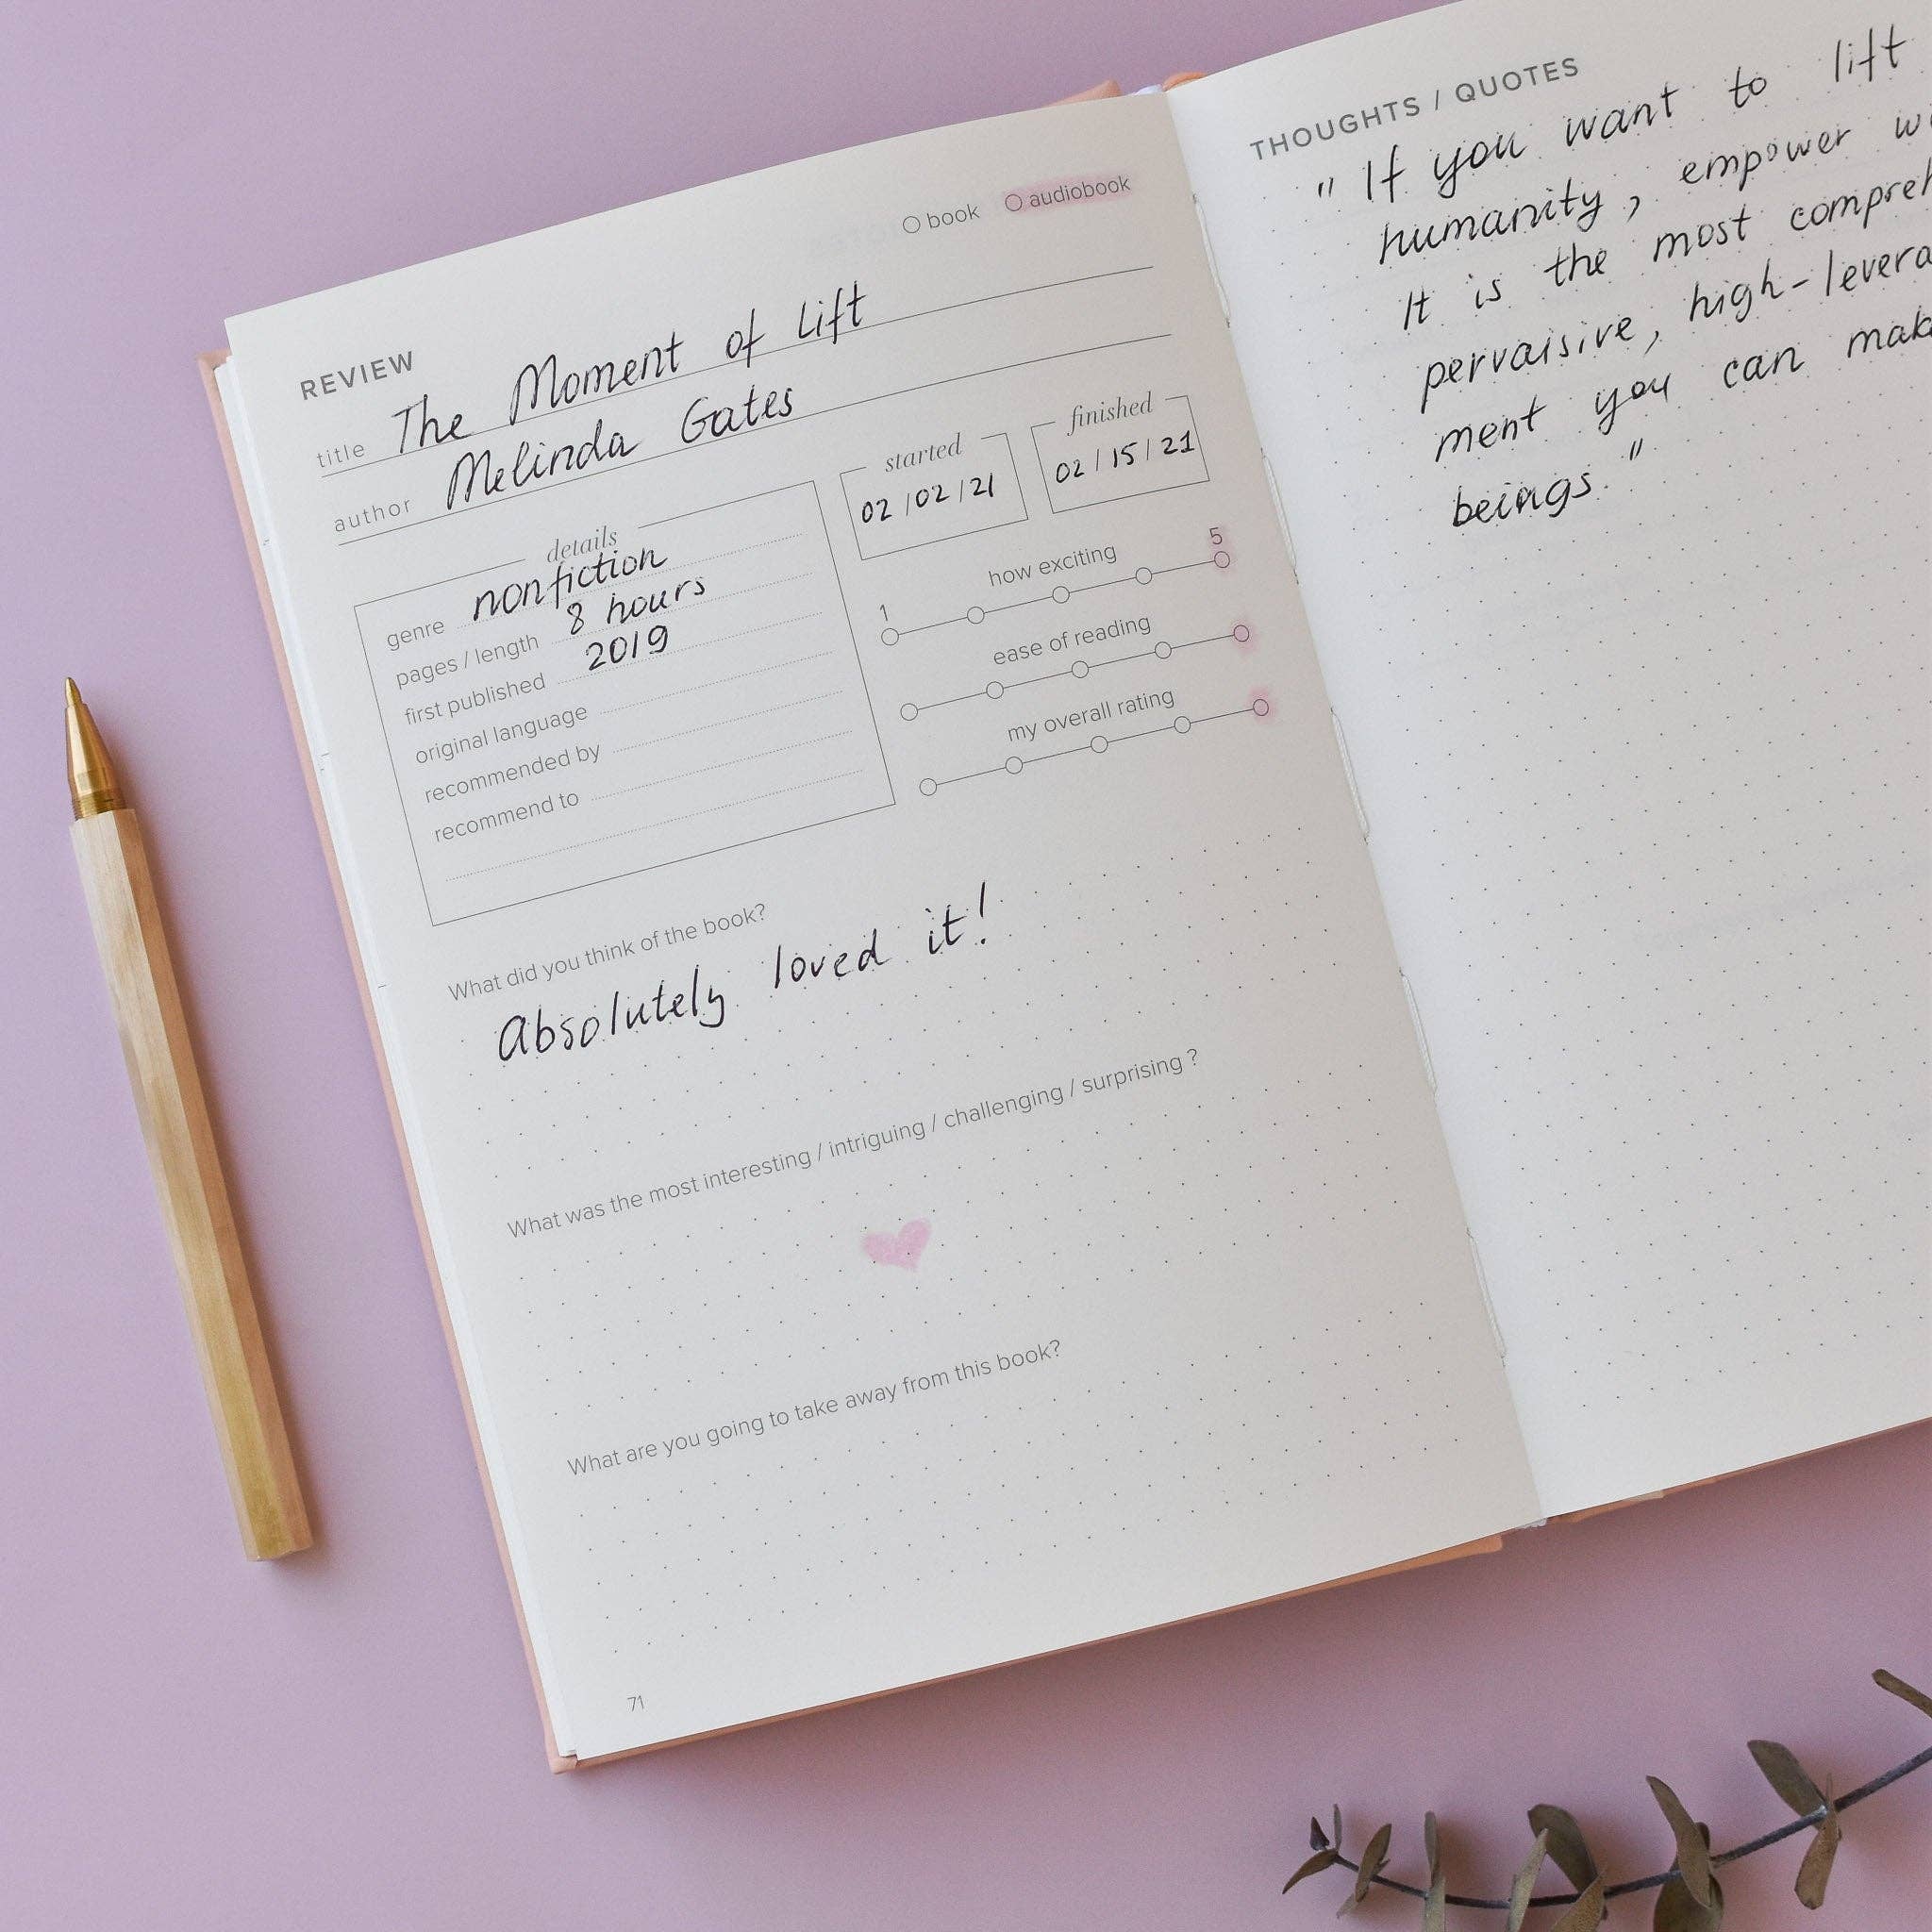 book audiobook
REVIEW
title The Moment of Lift
author Melinda Gates
details
genre nonfiction
pages / length 8 hours
first published 2019
original language
recommended by
recommend to
started
02/02/21
finished
02/15/21
how exciting
1 5
ease of reading
my overall rating
What did you think of the book?
Absolutely loved it!
What was the most interesting / intriguing / challenging / surprising ?
What are you going to take away from this book?
71
THOUGHTS / QUOTES
"If you want to lift
humanity, empower
It is the most
pervaisive,
ment you can
beings."